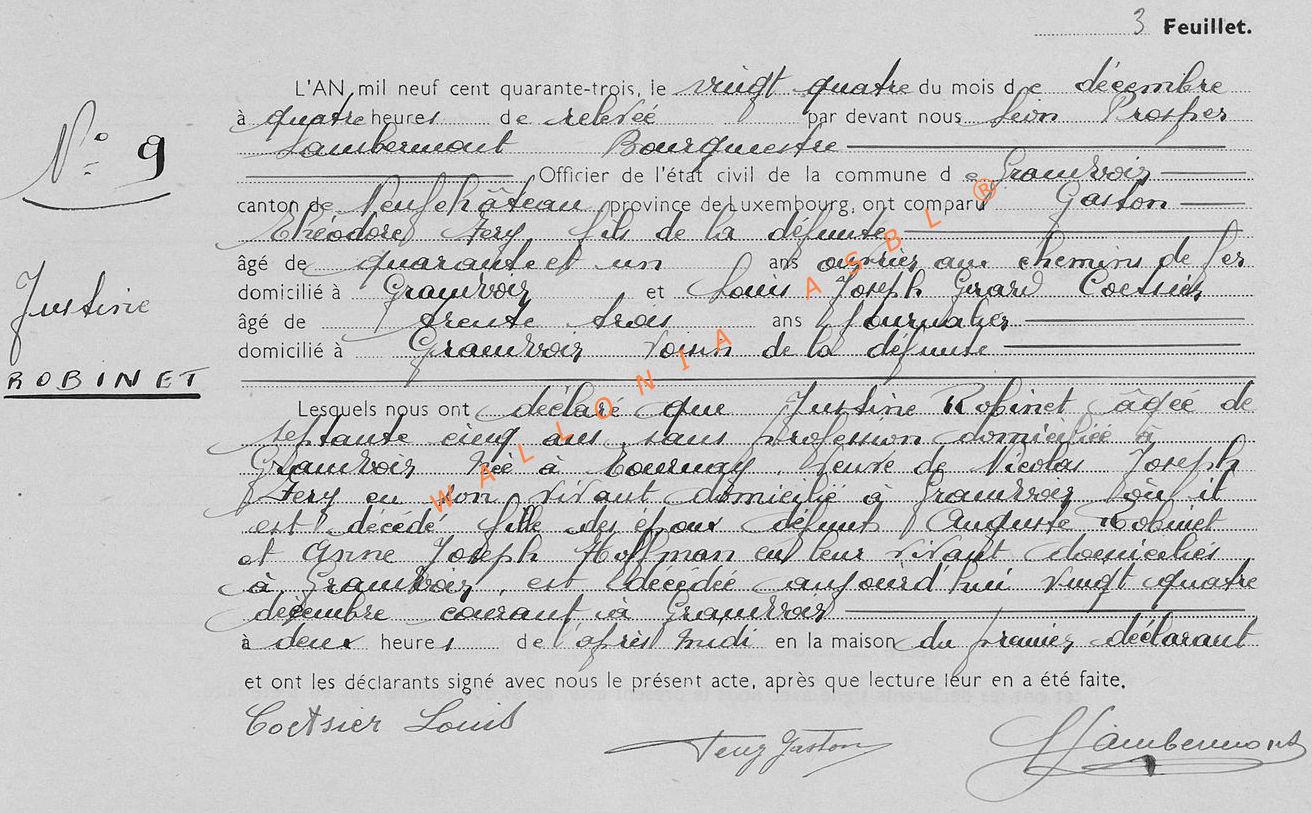 3 Feuillet.
L'AN mil neuf cent quarante-trois, le vingt quatre du mois de décembre
à quatre heures de relevée par devant nous Léon Prosper
Lambermont Bourgmestre
N° 9
Officier de l'état civil de la commune de Grandvoir
canton de Neufchâteau province de Luxembourg, ont comparu Gaston
Théodore Fery fils de la défunte
âgé de quarante et un ans ouvrier aux chemins de fer
domicilié à Grandvoir et Louis Joseph Gerard Coetsier
Justine
âgé de trente trois ans journalier
domicilié à Grandvoir voisin de la défunte
ROBINET
Lesquels nous ont déclaré que Justine Robinet âgée de
septante cinq ans, sans profession domiciliée à
Grandvoir née à Tournay, veuve de Nicolas Joseph
Fery en son vivant domicilié à Grandvoir où il
est décédé fille des époux défunt Auguste Robinet
et Anne Joseph Hoffman en leur vivant domiciliés
à Grandvoir, est décédée aujourd'hui vingt quatre
décembre courant à Grandvoir
à deux heures de l'après midi en la maison du premier déclarant
et ont les déclarants signé avec nous le présent acte, après que lecture leur en a été faite.
Coetsier Louis
Fery Gaston
Lambermont
WALLONIA ASBL ®